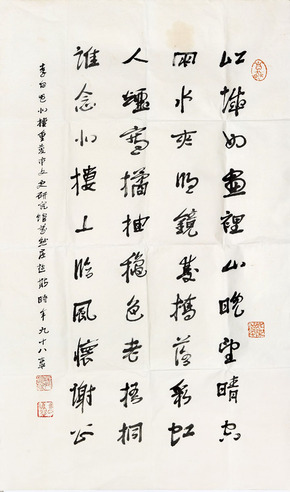 江城如畫裡山晚望晴空
兩水夾明鏡雙橋落彩虹
人煙寒橘柚穐色老梧桐
誰念北樓上臨風懷謝公
李白登北樓重慶市文史研究館時年九十八歲